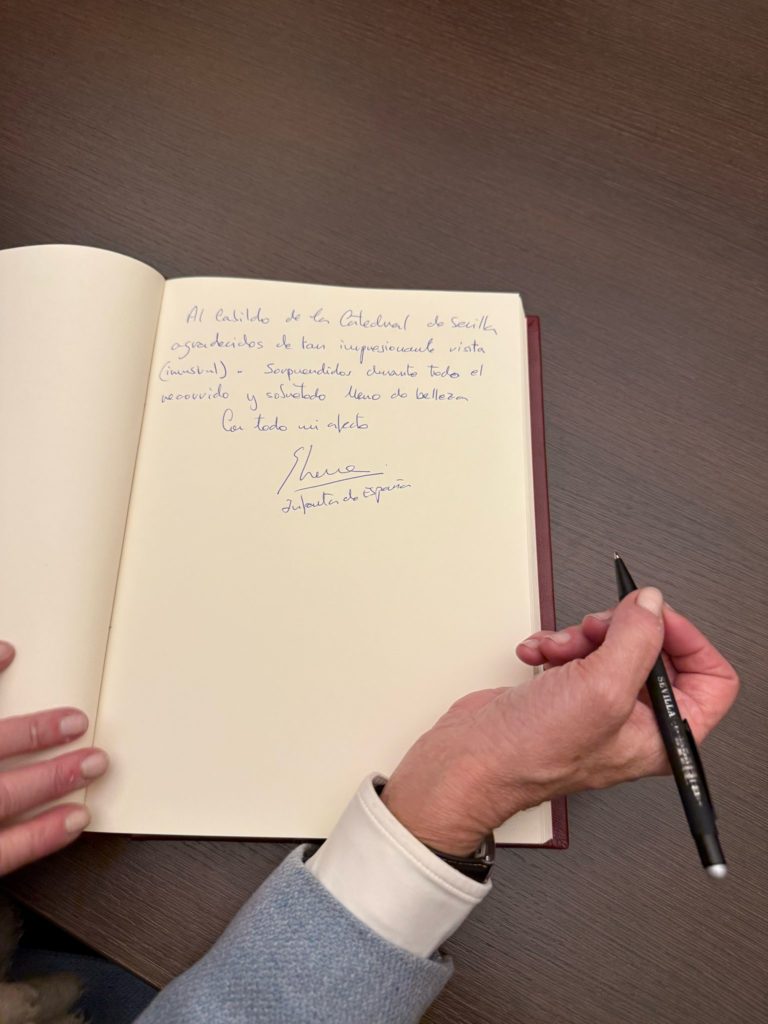 Al Cabildo de la Catedral de Sevilla
agradecidos de tan impresionante visita
(inusual). Sorprendidos durante todo el
recorrido y sobretodo lleno de belleza
Con todo mi afecto
Elena
Infanta de España
SEVILLA